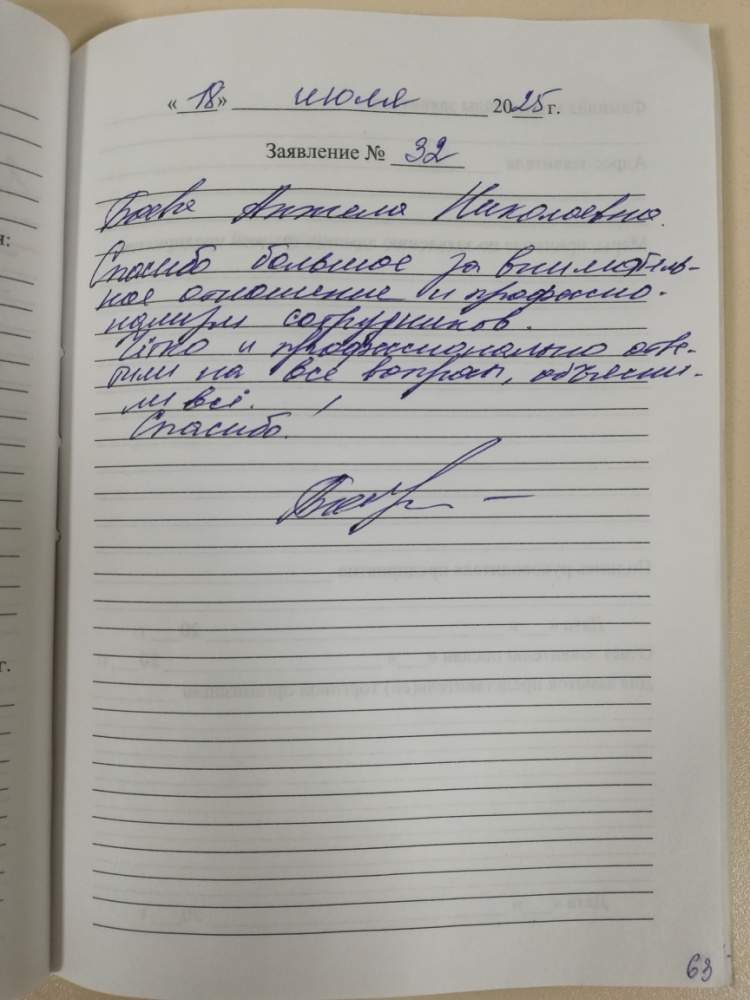 «18» июля 2025 г.
Заявление № 32
Боева Анжела Николаевна.
Спасибо большое за вниматель-
ное отношение и професио-
нализм сотрудников.
Чётко и професионально отве-
тили на все вопросы, объясни-
ли всё.
Спасибо!
63